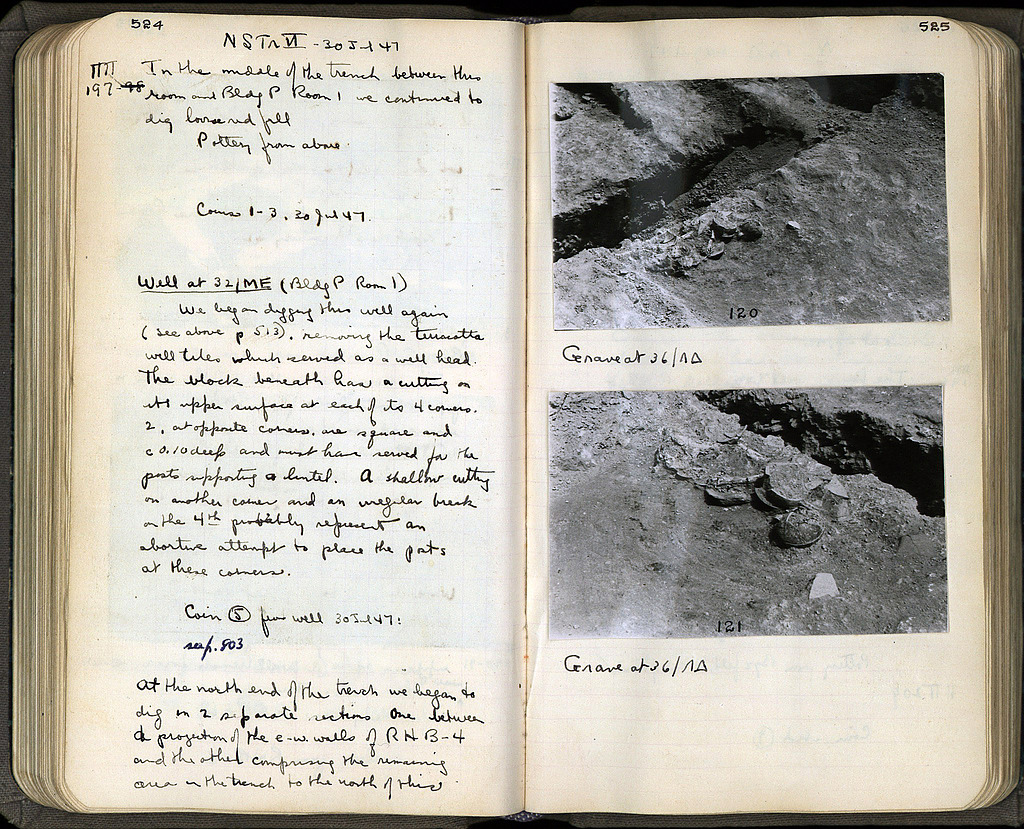 524
NSTr VI - 30 Jul 47
ΠΠ In the middle of the trench between this
197-98 room and Bldg P Room 1 we continued to
dig loose red fill
Pottery from above.
Coins 1-3, 30 Jul 47.
Well at 32/ME (Bldg P Room 1)
We began digging this well again
(see above p 513), removing the terracotta
well tiles which served as a well head.
The block beneath has a cutting on
its upper surface at each of its 4 corners.
2, at opposite corners, are square and
c 0.10 deep and must have served for the
posts supporting a lintel. A shallow cutting
on another corner and an irregular break
on the 4th probably represent an
abortive attempt to place the posts
at these corners.
Coin 5 from well 30 Jul 47:
see p. 803
At the north end of the trench we began to
dig in 2 separate sections One between
a projection of the e-w. walls of R H B-4
and the other comprising the remaining
area in the trench to the north of this
525
120
Grave at 36/ΛΔ
121
Grave at 36/ΛΔ